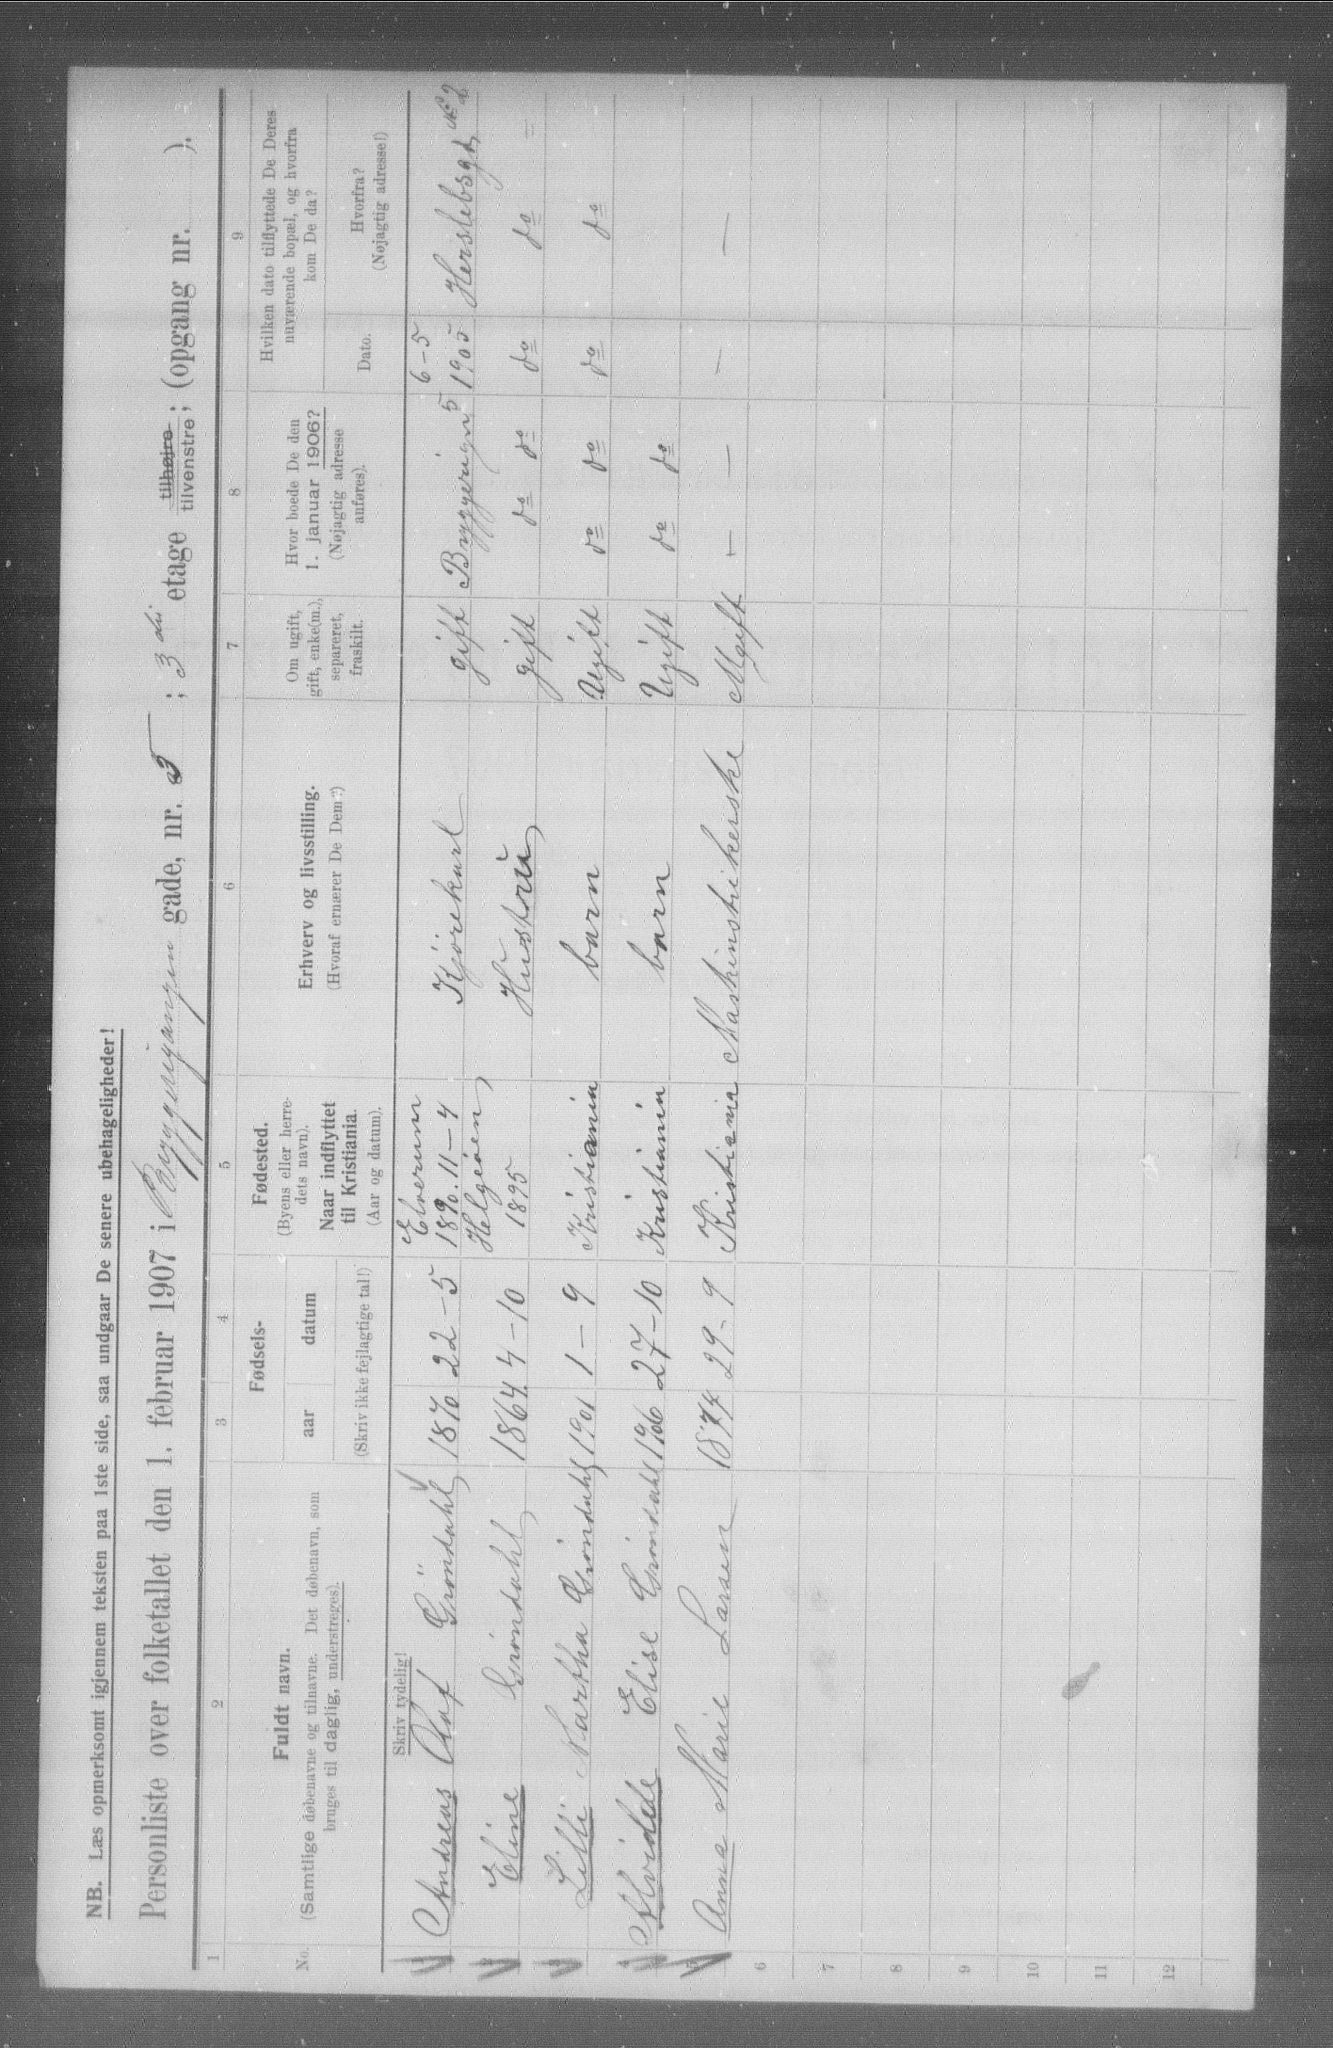 NB. Læs opmerksomt igjennem teksten paa 1ste side, saa undgaar De senere ubehageligheder!
Personliste over folketallet den 1. februar 1907 i Byggerigangen gade, nr. 5; 3die etage tilhøjre tilvenstre; (opgang nr. ).
1 2 3 4 5 6 7 8 9
No.
Fuldt navn.
(Samtlige døbenavne og tilnavne. Det døbenavn, som
bruges til daglig, understreges).
Skriv tydelig!
Fødsels-
aar datum
(Skriv ikke fejlagtige tal!)
Fødested.
(Byens eller herre-
dets navn).
Naar indflyttet
til Kristiania.
(Aar og datum).
Erhverv og livsstilling.
(Hvoraf ernærer De Dem?)
Om ugift,
gift, enke(m.),
separeret,
fraskilt.
Hvor boede De den
1. januar 1906?
(Nøjagtig adresse
anføres).
Hvilken dato tilflyttede De Deres
nuværende bopæl, og hvorfra
kom De da?
Dato.
Hvorfra?
(Nøjagtig adresse!)
1 Andreas Olaf Gröndahl 1870 22-5 Elverum 1890. 11-4 Kjörekarl gift Byggerign 5 6-5 1905 Herslebsgd No 2
2 Eline Gröndahl 1864 4-10 Helgöen 1895 Hustru gift do do do do =
3 Lilli Martha Gröndahl 1901 1-9 Kristiania barn Ugift do do do do
4 Alvilde Elise Gröndahl 1906 27-10 Kristiania barn Ugift do do
5 Anna Marie Larsen 1874 29-9 Kristiania Maskinstrikerske Ugift — — — —
6
7
8
9
10
11
12